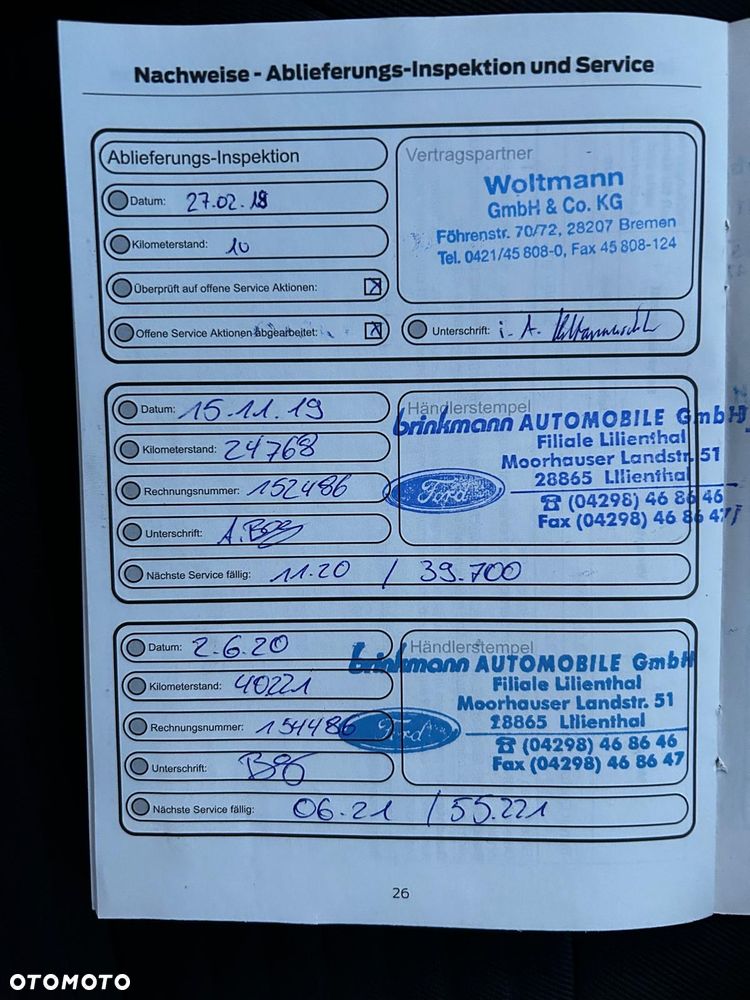 Nachweise - Ablieferungs-Inspektion und Service
Ablieferungs-Inspektion
Datum: 27.02.19
Kilometerstand: 10
Überprüft auf offene Service Aktionen:
Offene Service Aktionen abgearbeitet:
Vertragspartner
Woltmann
GmbH & Co. KG
Föhrenstr. 70/72, 28207 Bremen
Tel. 0421/45 808-0, Fax 45 808-124
Unterschrift: i. A.
Datum: 15.11.19
Kilometerstand: 24768
Rechnungsnummer: 152486
Unterschrift:
Nächste Service fällig: 11.20 / 39.700
Händlerstempel
brinkmann AUTOMOBILE GmbH
Filiale Lilienthal
Moorhauser Landstr. 51
28865 Lilienthal
Ford
☎ (04298) 46 86 46
Fax (04298) 46 86 47
Datum: 2.6.20
Kilometerstand: 40221
Rechnungsnummer: 154486
Unterschrift:
Nächste Service fällig: 06.21 / 55.221
Händlerstempel
brinkmann AUTOMOBILE GmbH
Filiale Lilienthal
Moorhauser Landstr. 51
28865 Lilienthal
Ford
☎ (04298) 46 86 46
Fax (04298) 46 86 47
26
OTOMOTO